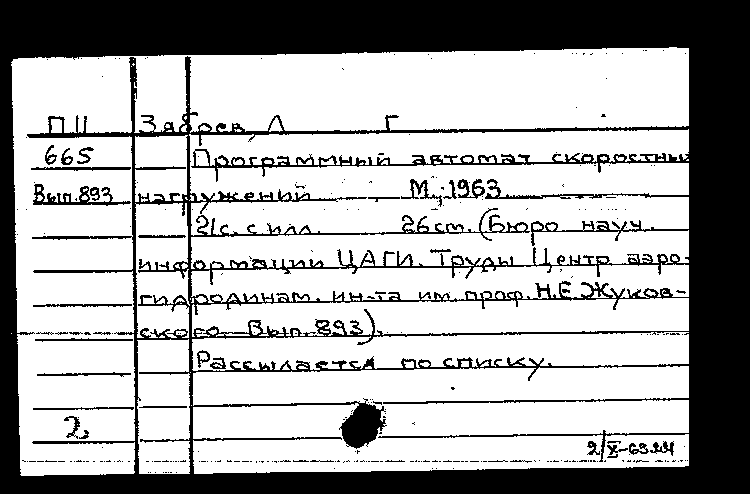 П II Забрев, Л Г
665 Программный автомат скоростных
Вып. 893 нагружений М., 1963.
21с. с илл. 26 cm. (Бюро науч.
информации ЦАГИ. Труды Центр аэро-
гидродинам. ин-та им. проф. Н.Е Жуков-
ского. Вып. 893).
Рассылается по списку.
2